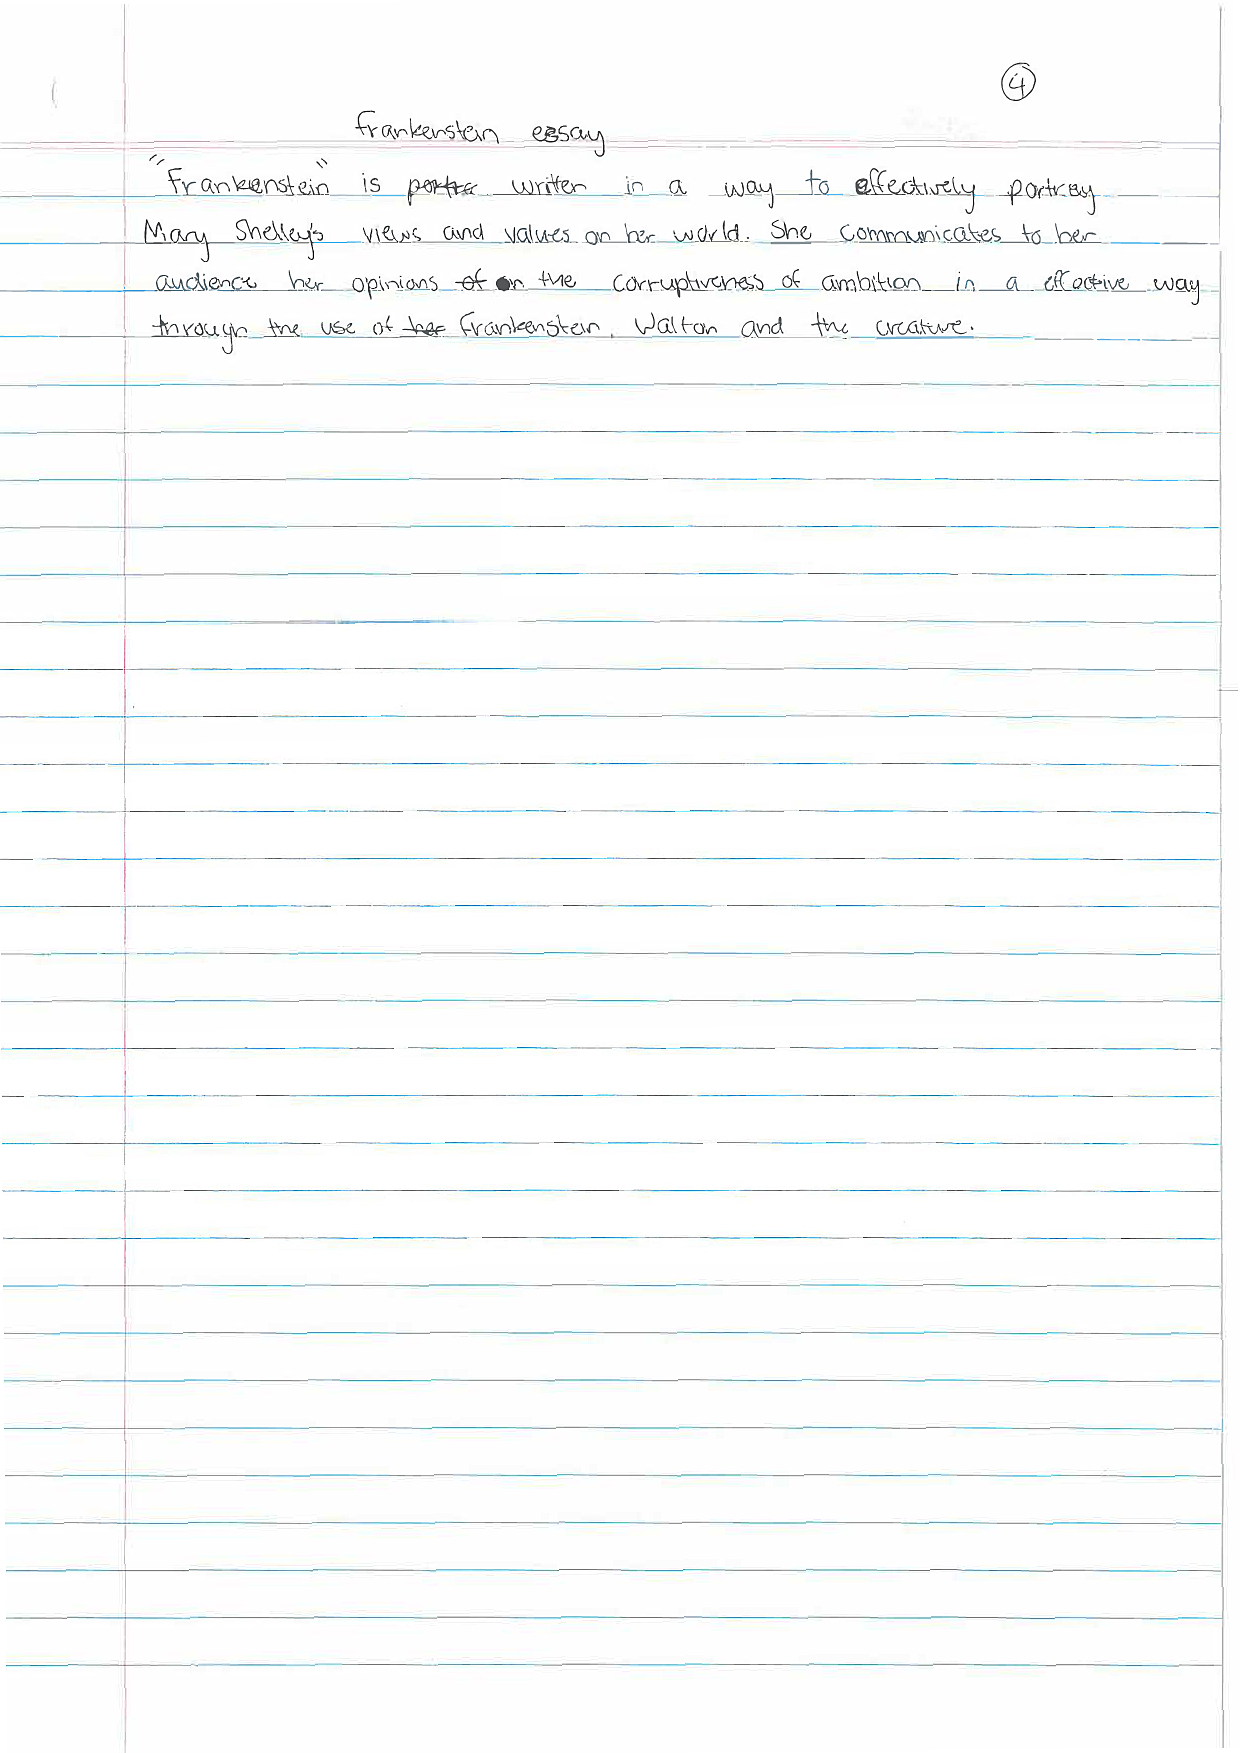 4
Frankenstein essay
"Frankenstein" is portra writen in a way to effectively portray
Mary Shelley's views and values on her world. She communicates to her
audience her opinions of on the corruptiveness of ambition in a effective way
through the use of her Frankenstein, Walton and the creature.